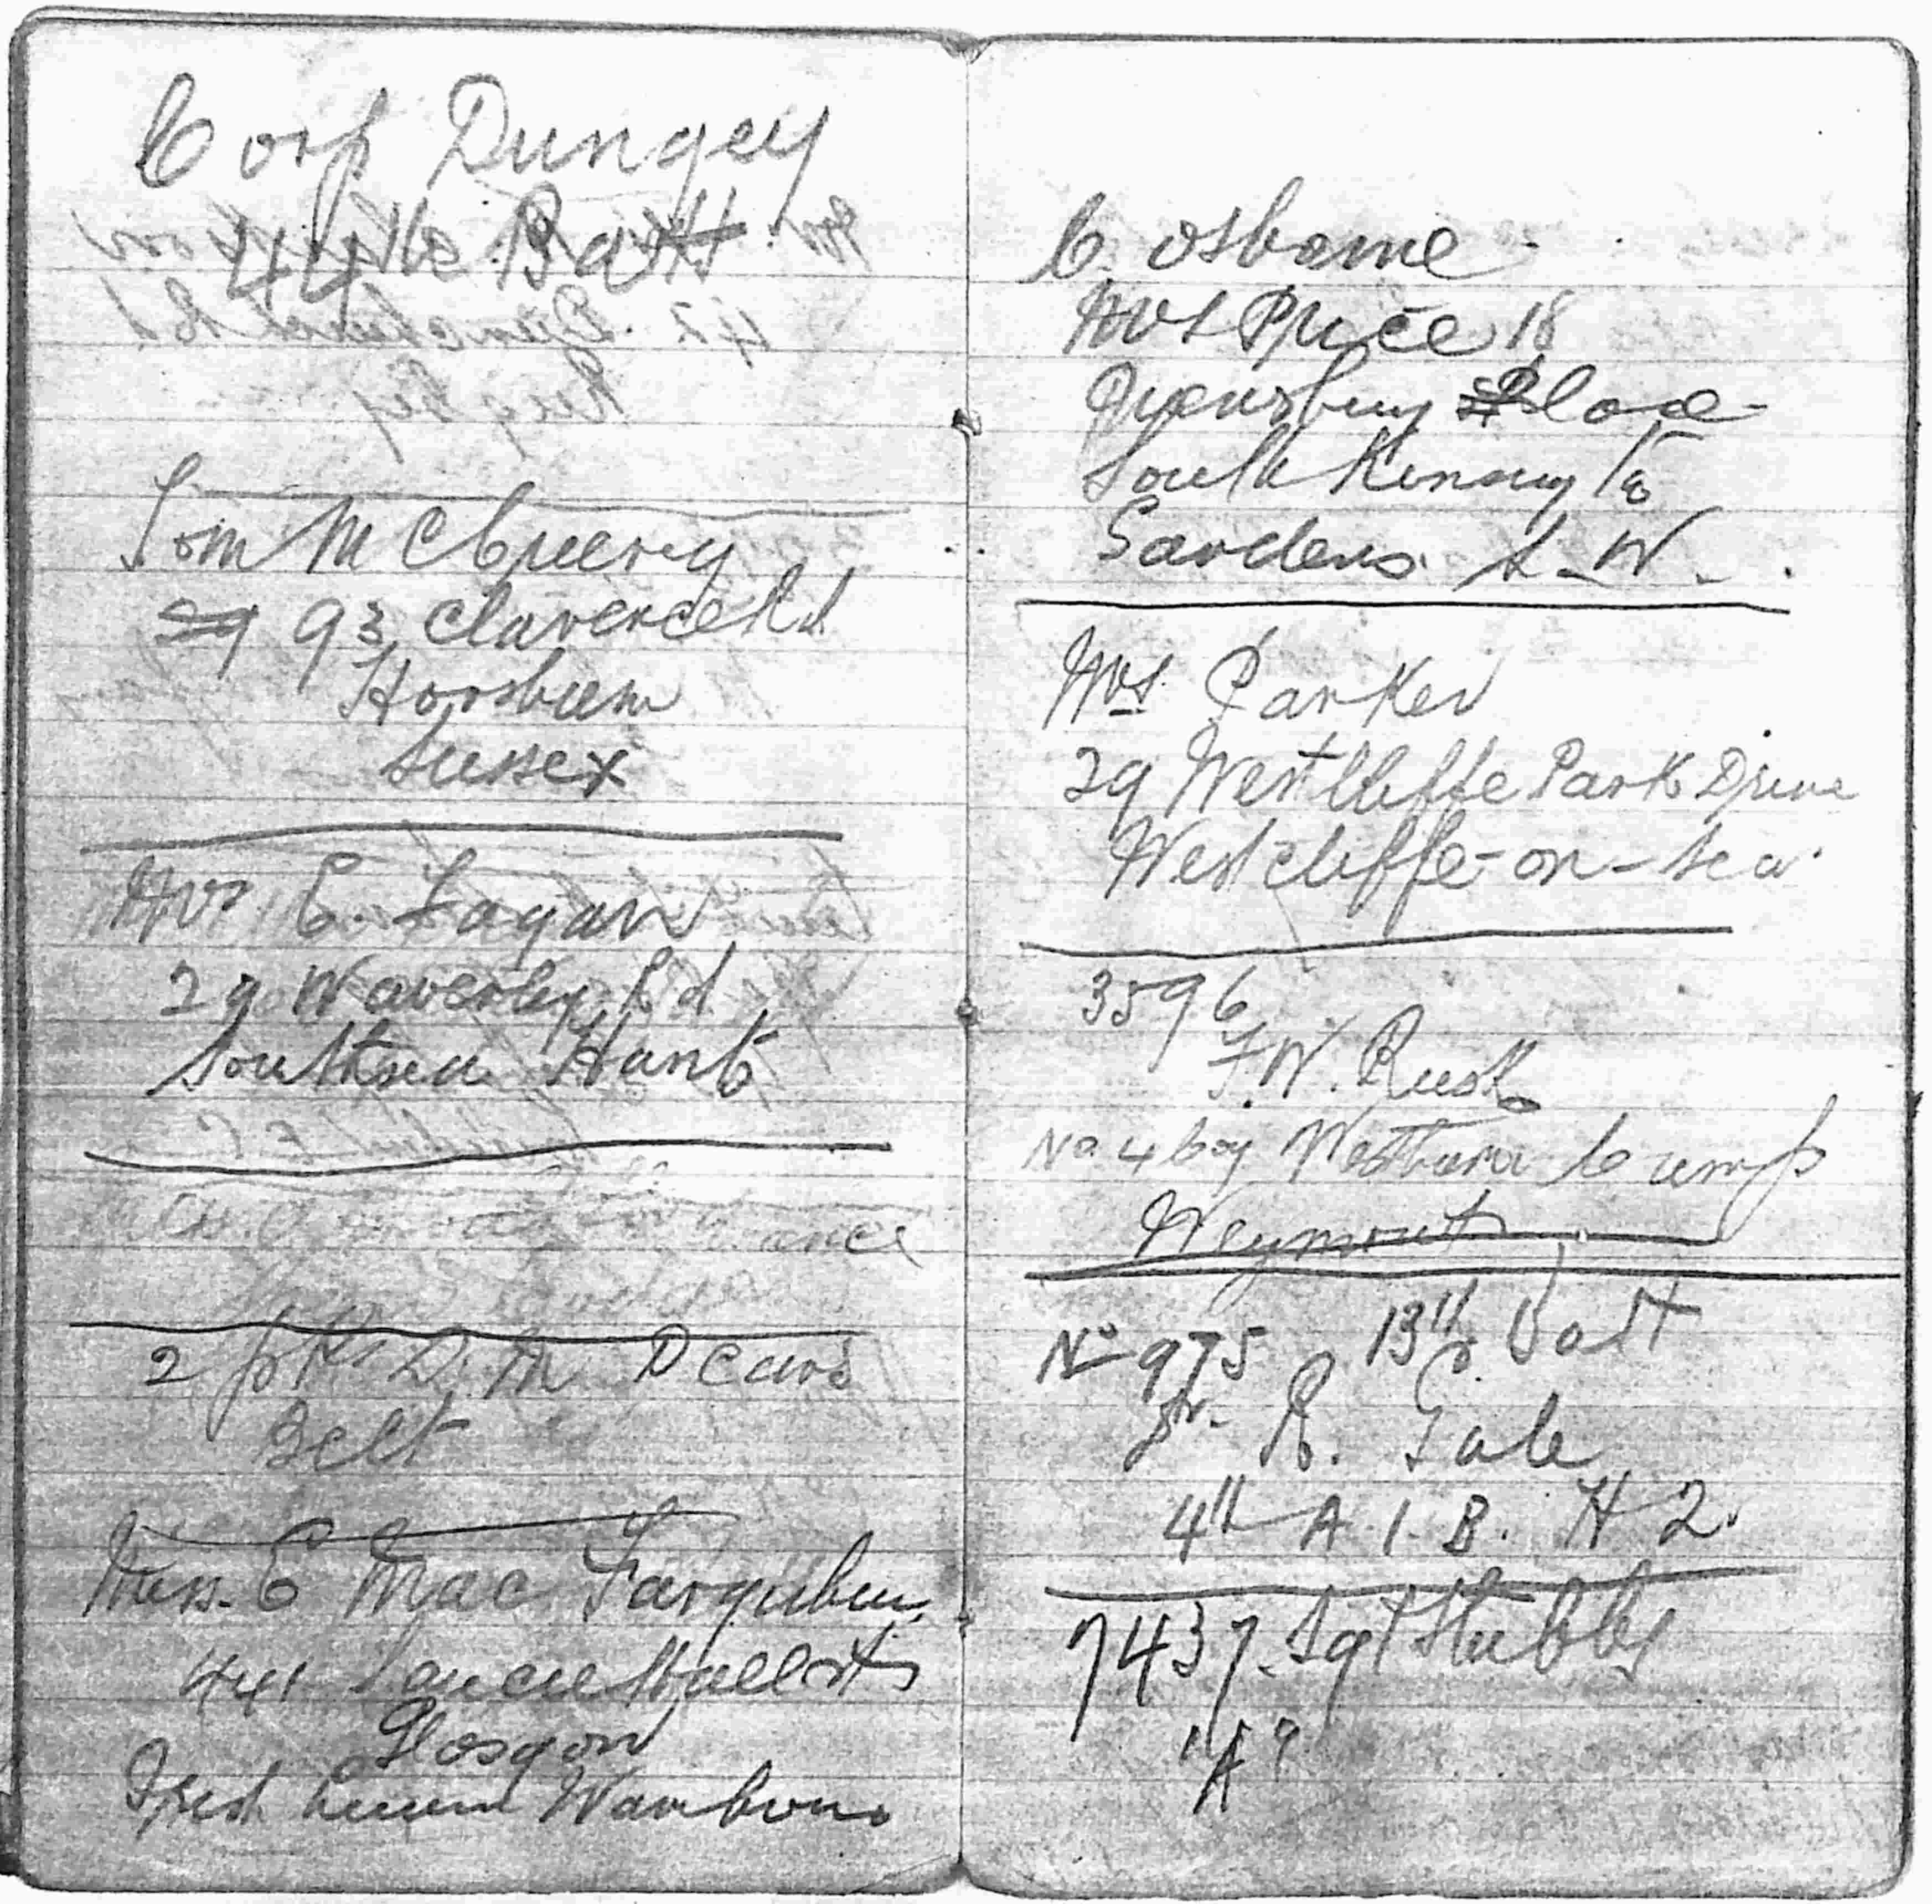 Corp Dungey
44th Batt
Tom McCreery
93 Clarence Rd
Horsham
Sussex
Mrs E. Fagan
29 Waverley Rd
Southsea Hants
2 pkts D.M Pears
Belt
Miss. E Mac Farquhar
441 Hall St
Glasgow
Wambown
C. Osborne
Mrs Price 18
Queensbury Place
South Kensingto
Gardens S.W.
Mrs Parker
29 Westcliffe Park Drive
Westcliffe-on-Sea
3596
F.W. Rush
No 4 Coy Westham Camp
Weymouth
No 975 13th Batt
Dr. R. Gale
4th A.I.B. H 2.
7437 Sgt Stubbs
"A"